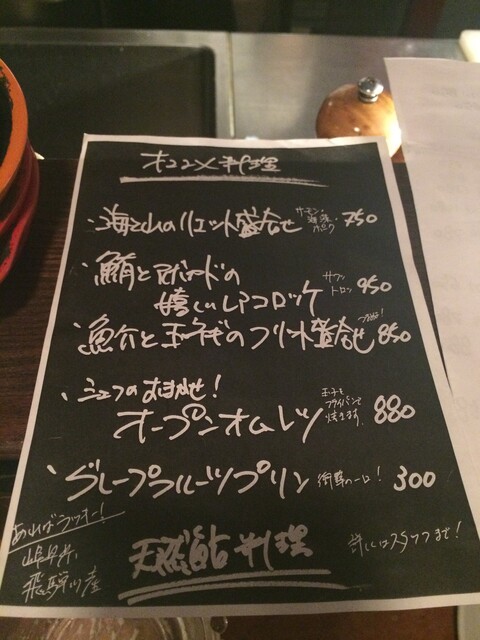 オススメ料理
・海と山のリエット盛合せ サーモン・海老・ポーク 750
・鮪とアボカドの
嬉しいレアコロッケ サワントロン 950
魚介と玉ネギのフリット盛合せ 850
・シェフのおまかせ!
オープンオムレツ 玉子をフライパンで焼きます。 880
・グレープフルーツプリン 衝撃の一口! 300
あればラッキー!
岐阜県、
飛騨川産
天然鮎料理
詳しくはスタッフまで!